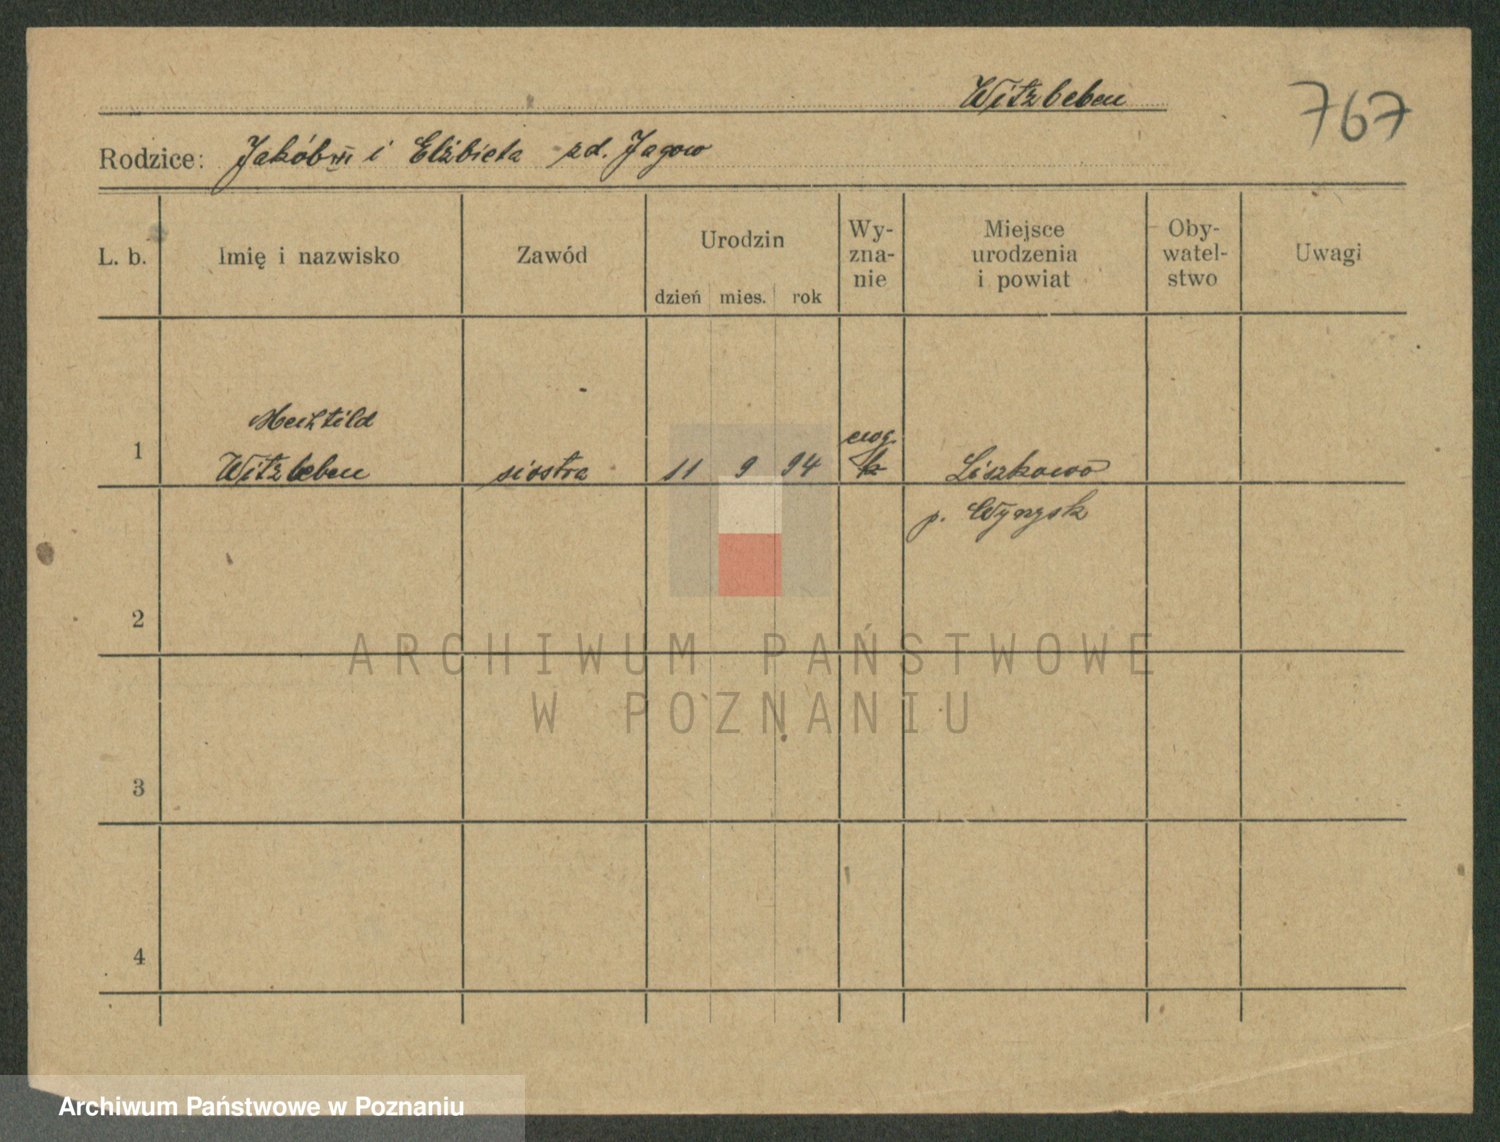 Witzleben
767
Rodzice: Jakób i Elżbieta zd. Jagow
L. b.
Imię i nazwisko
Zawód
Urodzin
dzień mies. rok
Wy-
zna-
nie
Miejsce
urodzenia
i powiat
Oby-
watel-
stwo
Uwagi
1
Mechtild
Witzleben
siostra
11 9 94
ewg.
k
Liszkowo
p. Wyrzysk
2
3
4
ARCHIWUM PAŃSTWOWE
W POZNANIU
Archiwum Państwowe w Poznaniu